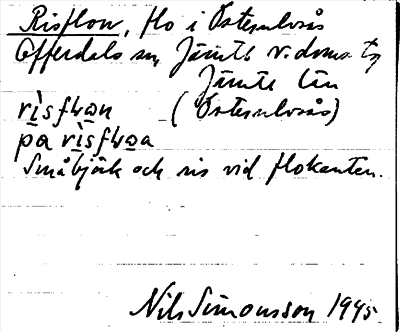 Risflon, flo i Östernlvsås
Offerdals sn, Jämtl v. doms. tg
Jämtl län
rìsfɬo̲n (Östernlvsås)
på rìsfɬo̲a
Småbjörk och ris vid flokanten.
Nils Simonsson 1945